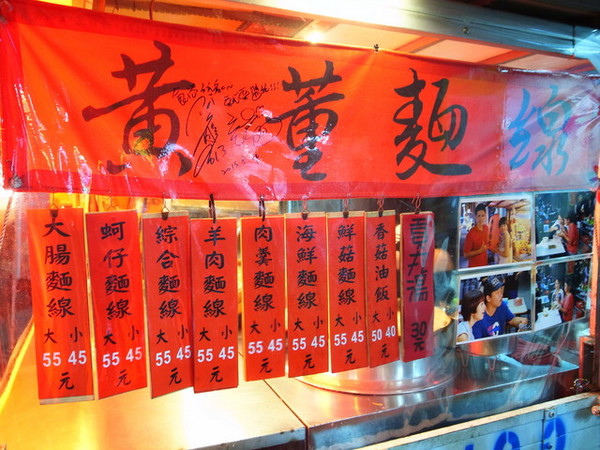 黃董麵線
大腸麵線 大55 小45 元
蚵仔麵線 大55 小45 元
綜合麵線 大55 小45 元
羊肉麵線 大55 小45 元
肉羹麵線 大55 小45 元
海鮮麵線 大55 小45 元
鮮菇麵線 大55 小45 元
香菇油飯 大50 小40 元
貢丸湯 30元